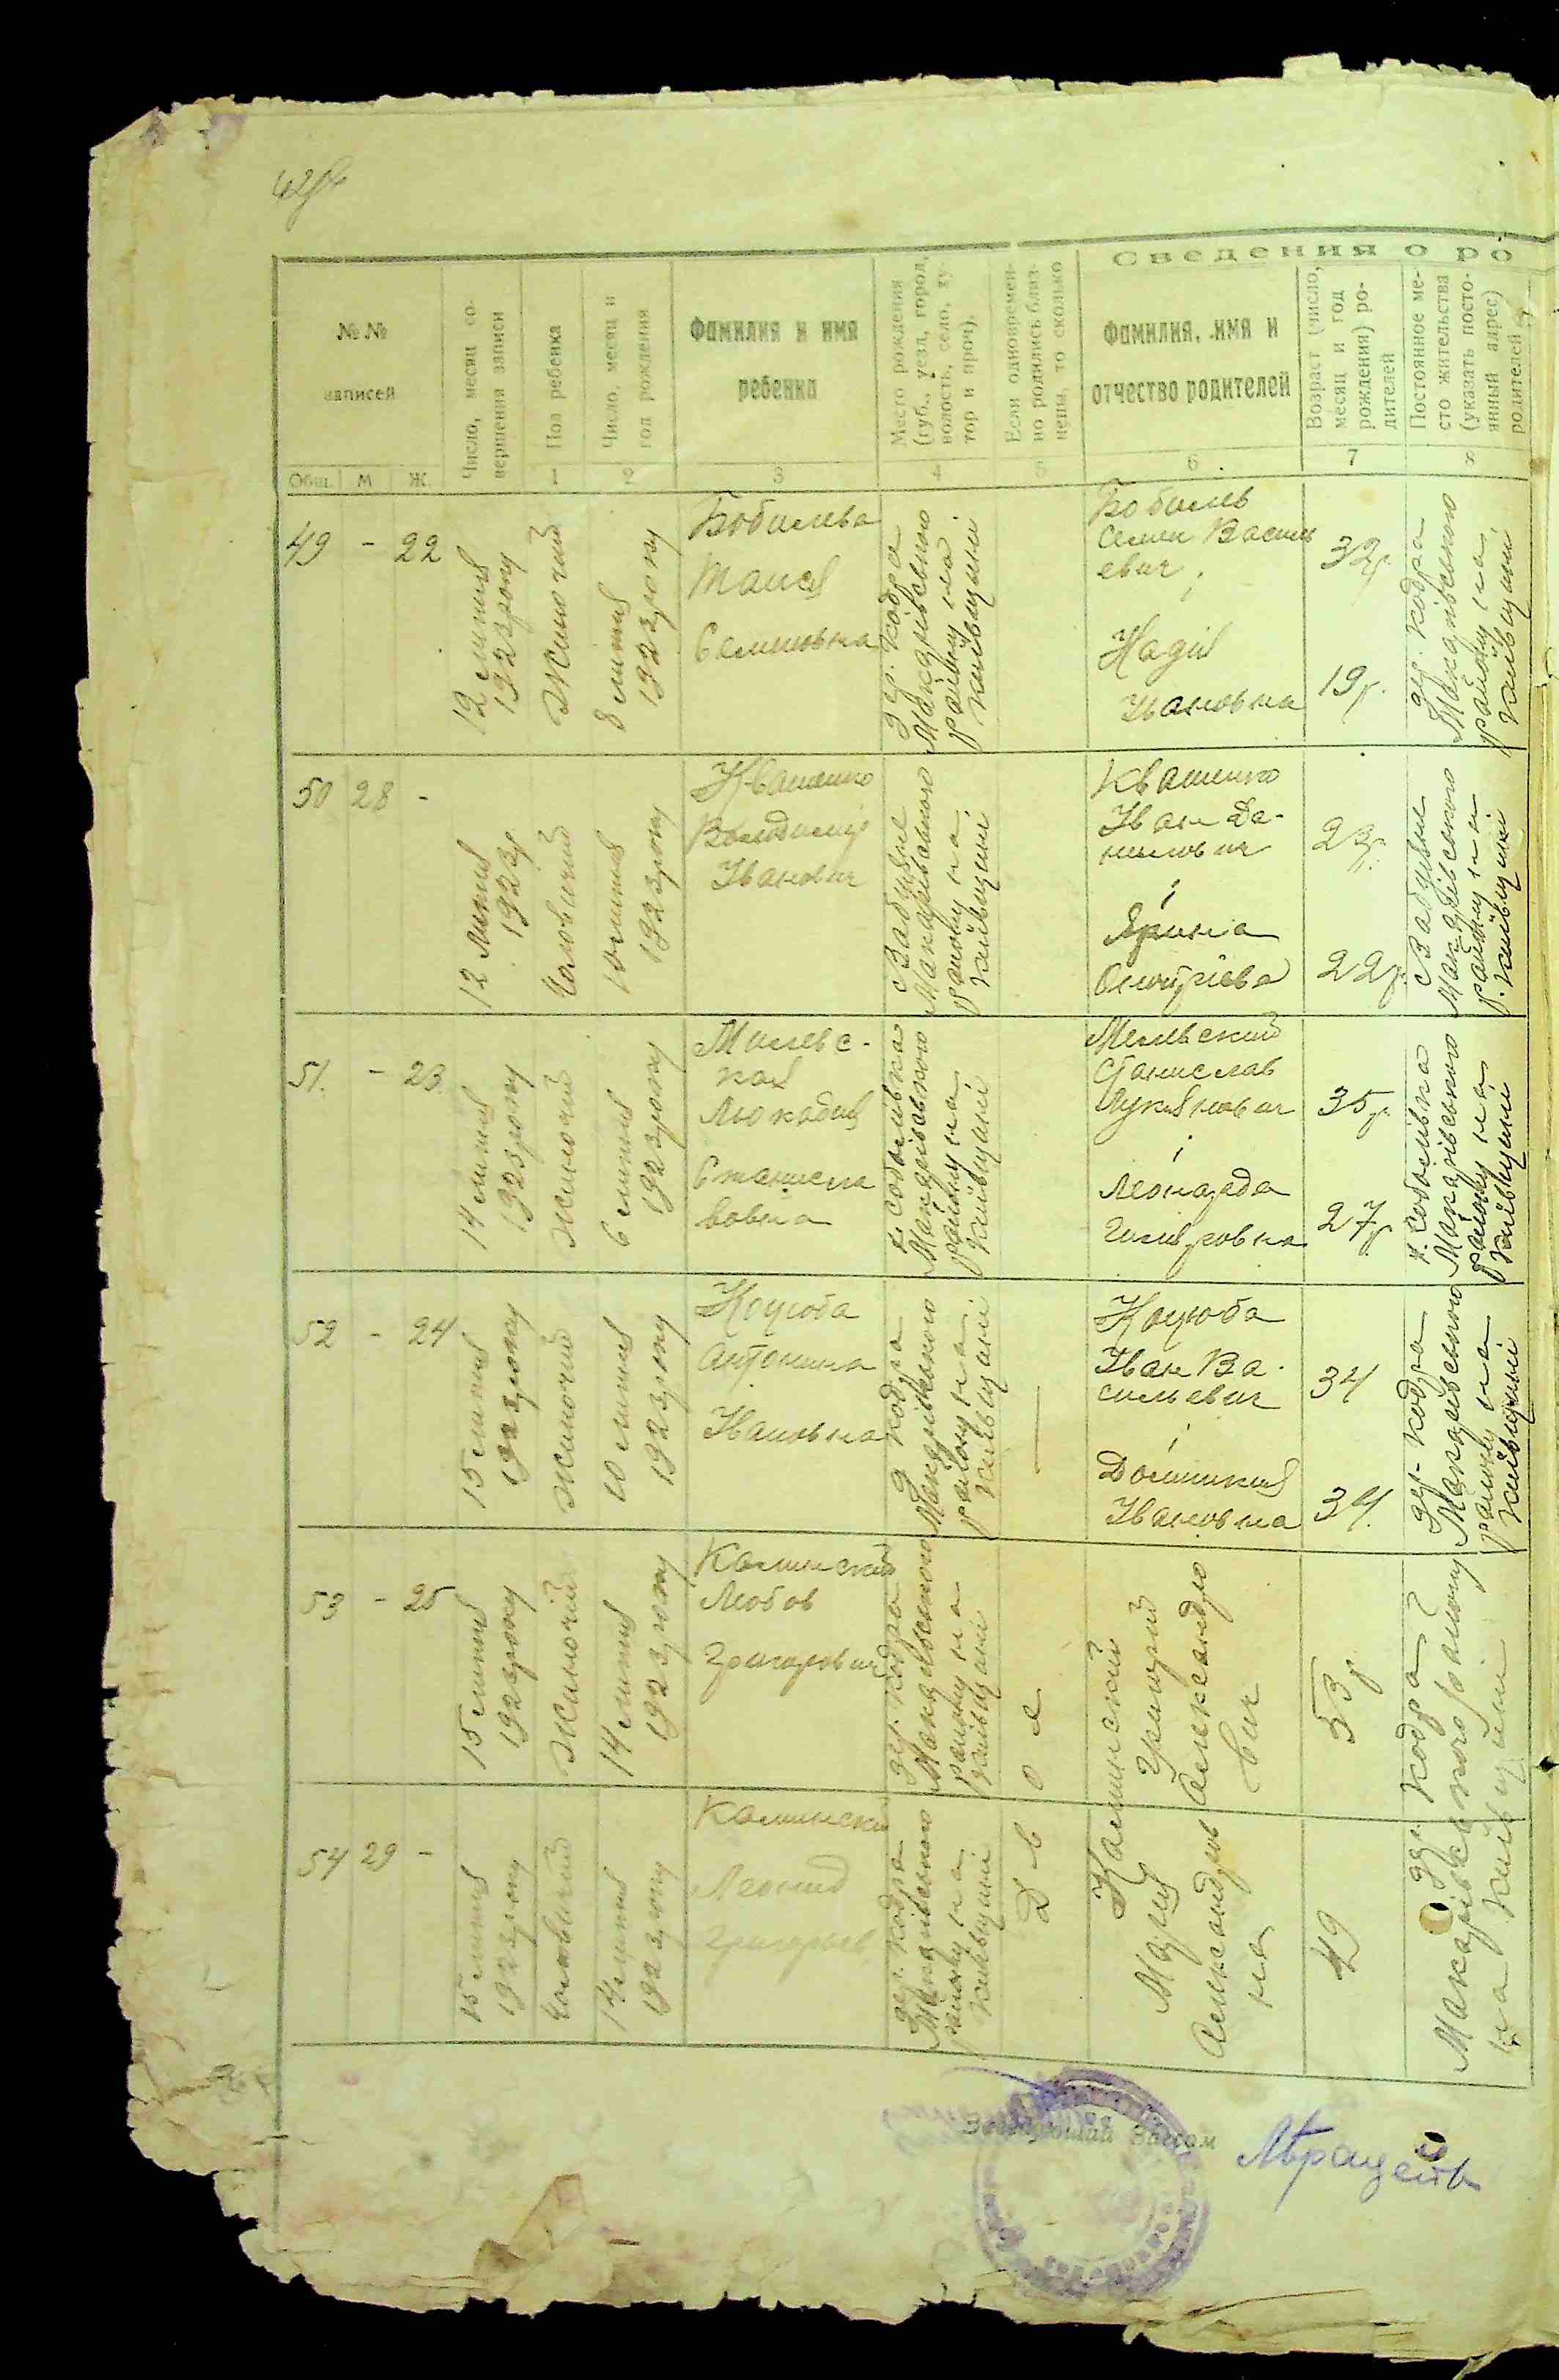 Сведения о ро
№№
записей
Число, месяц со-
вершения записи
Пол ребенка
Число, месяц и
год рождения
Фамилия и имя
ребенка
Место рождения
(губ., уезд, город,
волость, село, ху-
тор и проч).
Если одновремен-
но родились близ-
нецы, то сколько
Фамилия, имя и
отчество родителей
Возраст (число,
месяц и год
рождения) ро-
дителей
Постоянное ме-
сто жительства
(указать посто-
янный адрес)
родителей
Общ. М Ж. 1 2 3 4 5 6 7 8
49 - 22
12 липня
1923 року
Жиночий
8 липня
1923 року
Бобилева
Таися
Семеновна
дер. Кодра
Макарівського
району на
Київщині
Бобилев
Семен Василь
евич
і
Надія
Ивановна
32р.
19р.
дер. Кодра
Макарівського
району на
Київщині
50 28 -
12 липня
1923р
Чоловичий
10 липня
1923 року
Квашенко
Володимир
Іванович
Макарівського
району на
Київщині
Квашенко
Іван Да-
нилович
і
Ярина
23р.
22р.
Макарівського
району на
Київщині
51. - 23
14 липня
1923 року
Жиночий
6 липня
1923 року
Милевс-
кая
Люкадия
Станисла
вовна
х. Соболівка
Макарівського
району на
Київщині
Станислав
Лукянович
і
Леонарда
35р.
27р
х. Соболівка
Макарівського
району на
Київщині
52 - 24
15 липня
1923 року
Жиночий
10 липня
1923 року
Коцюба
Антонина
Ивановна
д Кодра
Макарівського
району на
Київщині
Коцюба
Іван Ва-
сильевич
і
Домникия
Івановна
34
34.
дер. Кодра
Макарівського
району на
Київщині
53 - 25
15 липня
1923 року
Жиночий
14 липня
1923 року
Любов
Григорович
дер. Кодра
Макарівського
району на
Київщині
Двое
Каминский
Григорий
Александро
вич
53р
дер. Кодра
Макарівського району
на Київщині
54 29 -
15 липня
1923 року
Чоловичий
14 липня
1923 року
Каминский
Леонид
Григорьев
дер. Кодра
Макарівського
району на
Київщині
Мария
Александров
на
49
Заведующий Загсом